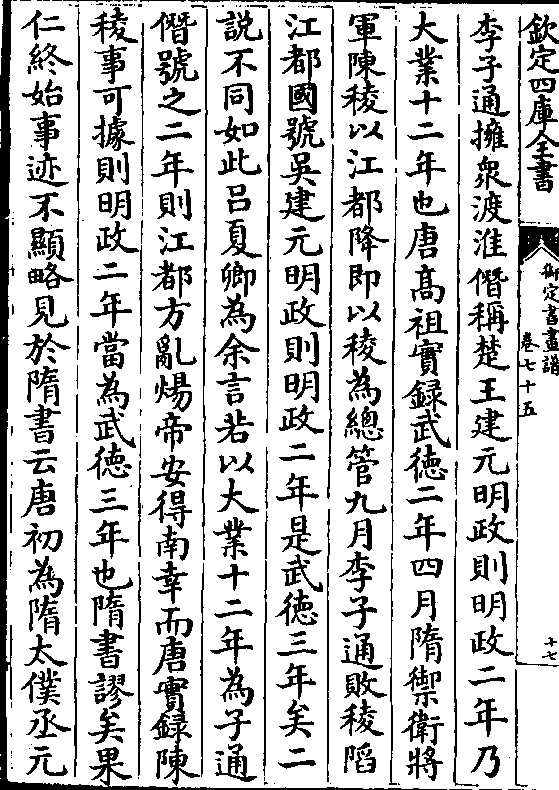 欽定四庫全書
御定書畫譜
卷七十五
十七
李子通擁衆渡淮僭稱楚王建元明政則明政二年乃
大業十二年也唐髙祖實録武徳二年四月隋禦衛將
軍陳稜以江都降即以稜為總管九月李子通敗稜䧟
江都國號吳建元明政則明政二年是武徳三年矣二
說不同如此吕夏卿為余言若以大業十二年為子通
僭號之二年則江都方亂煬帝安得南幸而唐實録陳
稜事可據則明政二年當為武徳三年也隋書謬矣果
仁終始事迹不顯略見於隋書云唐初為隋太僕丞元